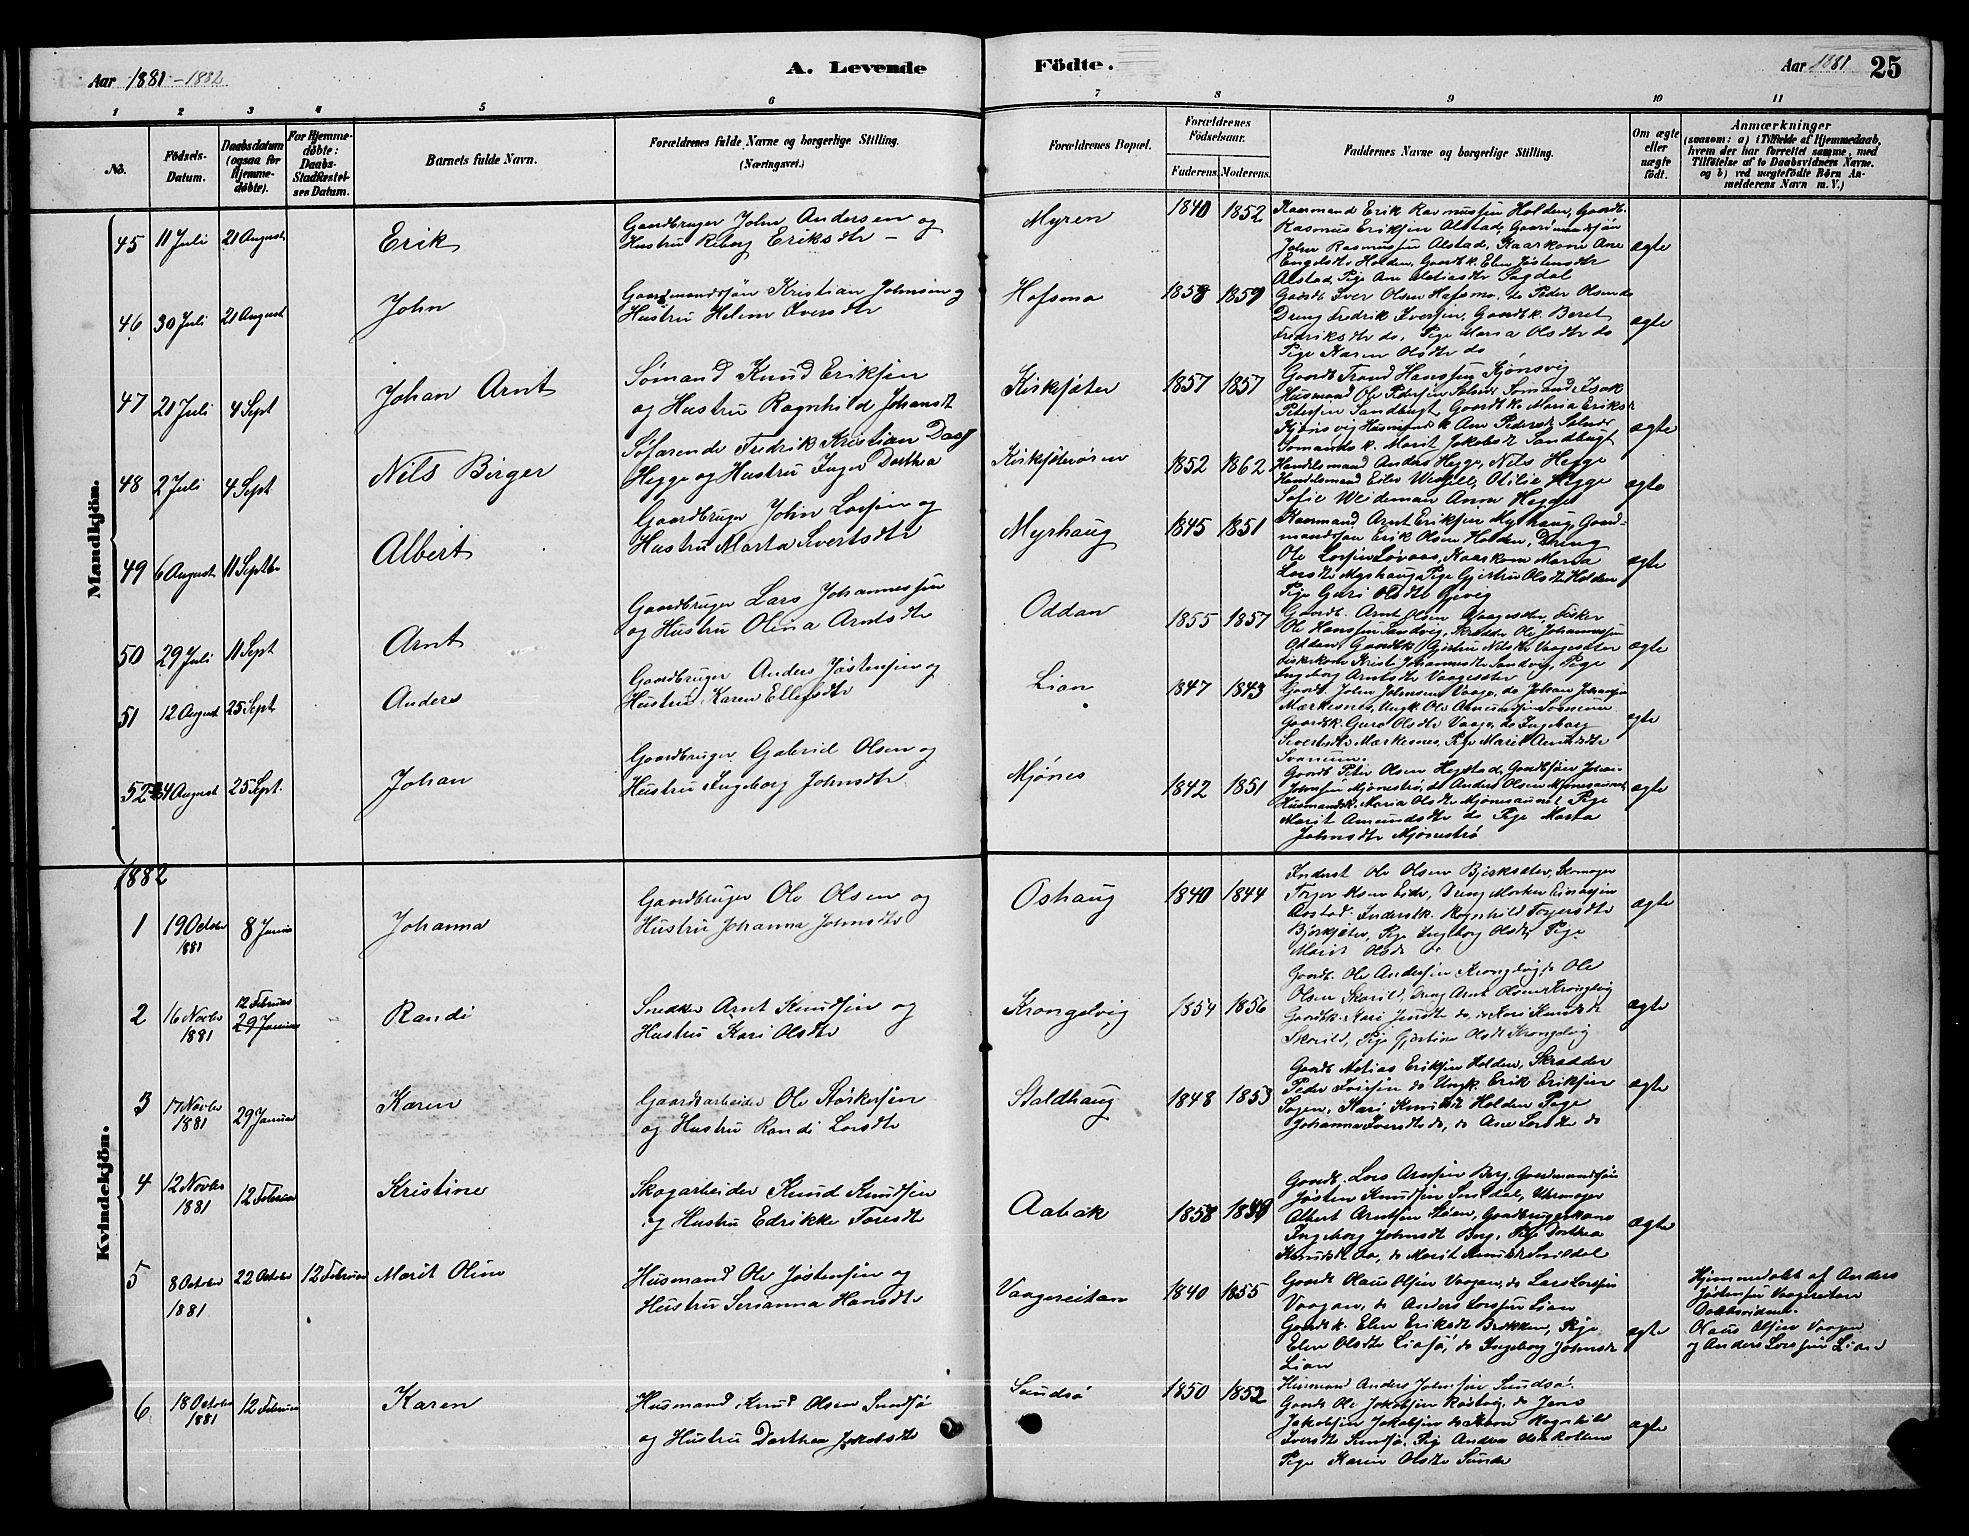 Aar 1881-1882
A. Levende
Födte.
Aar 1881
25
1 2 3 4 5 6 7 8 9 10 11
No.
Födsels-Datum.
Daabsdatum (ogsaa for Hjemme-döbte).
For Hjemme-döbte: Daabs-Stadfæstel-ses Datum.
Barnets fulde Navn.
Forældrenes fulde Navne og borgerlige Stilling.
(Næringsvei.)
Forældrenes Bopæl.
Forældrenes Födselsaar.
Faderens. Moderens.
Faddernes Navne og borgerlige Stilling.
Om ægte eller uægte födt.
Anmærkninger
(saasom: a) i Tilfælde af Hjemmedaab, hvem der har forrettet samme, med Tilföielse af to Daabsvidners Navne. og b) ved uægtefödte Börn An-melderens Navn m. V.)
Mandkjön.
45 11 Juli 21 August Erik
Gaardbruger John Andersen og
Hustru Eriksdtr
Myren 1840 1852
Kaarmand Erik Rasmussen Holden, Gaardb.
Rasmus Eriksen Alstad, Gaardmandssøn
John Rasmussen Alstad, Kaarkone Ane
Engelsdtr Holden, Gaardk. Elen Jøstensdtr
Alstad, Pige Ane Sagdal
ægte
46 30 Juli 21 August John
Gaardmandssøn Kristian Johnsen og
Hustru Helene Iversdtr
Hofsmo 1858 1859
Gaardb. Iver Olsen Hofsmo, do Peder Olsen do
Dreng Fredrik Iversen, Gaardk. Beret
Fredriksdtr do, Pige Maria Olsdtr do
Pige Karen Olsdtr do
ægte
47 21 Juli 4 Sept Johan Arnt
Sømand Knud Eriksen
og Hustru Ragnhild Johansdt
Kirksæter 1857 1857
Gaardb Trond Hanssen Kjønsvig
Husmand Ole Pedersen, Sømand Isak
Petersen Sandbugt, Gaardk. Maria Eriksd
Kjønsvig Husmandsk. Ane Pedersdt
Sømandsk. Marit Jakobsdt Sandbugt
ægte
48 2 Juli 4 Sept Nils Birger
Søfarende Fredrik Kristian Daas
Hegge og Hustru Inger Dorthea
Kirksæterøren 1852 1862
Handelsmand Anders Hegge, Nils Hegge
Handelsmand Wessel, Otilie Hegge
Sofie Weideman Anna Hegge
ægte
49 6 August 11 Septbr Albert
Gaardbruger John Larsen og
Hustru Marta Sivertsdtr
Myrhaug 1845 1851
Kaarmand Arnt Eriksen Myrhaug, Gaard-
mandssøn Erik Olsen Holden, Dreng
Ole Larsen Løvaas, Kaarkone Maria
Larsdtr Myrhaug Pige Gjertru Olsdtr Holden
Pige Guri Olsdtr Gjevig
ægte
50 29 Juli 11 Sept Arnt
Gaardbruger Lars Johannessen
og Hustru Olina Arntsdtr
Oddan 1855 1857
Gaardb. Arnt Olsen Vaagesæter, Fisker
Ole Hanssen Sandvig, Skrædder Ole Johannessen
Oddan, Gaardk. Gjertru Nilsdtr Vaagesæter
Fiskerkone Johannesdtr Sandvig, Pige
Ingeborg Arntsdtr Vaagesæter
ægte
51 12 August 25 Sept Anders
Gaardbruger Anders Jøstensen og
Hustru Karen Ellefsdtr
Lian 1847 1843
Gaardb. John Johnsen Vaage, do Johan Johansen
Mærkesnes, Ungk. Ole Amundsen
Gaardk. Guro Olsdtr Vaage, do Ingeborg
Sivertsdtr Mærkesnes, Pige Marit Amundsdtr
ægte
52 24 August 25 Sept. Johan
Gaardbruger Gabriel Olsen og
Hustru Ingeborg Johnsdtr
Mjønes 1842 1851
Gaardb Peter Olsen Hegstad, Gaardbsøn Johan
Johnsen Mjønestrø, do Anders Olsen Mjønesaunet
Husmandsk. Maria Olsdtr Mjønesaunet Pige
Marit Amundsdtr do Pige Marta
Johnsdtr Mjønestrø
ægte
Kvindekjön.
1882
1 19 October 1881 8 Januar Johanna
Gaardbruger Ole Olsen og
Hustru Johanna Johnsdtr
Oshaug 1840 1844
Inderst Ole Olsen Bjerksæter, Skomager
Eide, Dreng Morten Einarsen
Aastad, Inderstk. Ragnhild
Pige Ingeborg Olsdtr, Pige
Marit Olsdtr
ægte
2 16 Novbr 1881 12 Februar 29 Januar Randi
Snedker Arnt Knudsen og
Hustru Kari Olsdtr
Krongelvig 1854 1856
Gaardb. Ole Andersen Krongelvig, do Ole
Olsen Skorild, Dreng Arnt Olsen Krongelvig
Gaardk. Kari do do Kari Knudsdt
Skorild, Pige Gjertine Olsdt Krongelvig
ægte
3 17 Novbr 1881 29 Januar Karen
Gaardsarbeider Ole Størkersen
og Hustru Randi Larsdtr
Staldhaug 1848 1853
Gaardb Matias Eriksen Holden, Skrædder
Peder Iversen do Ungk. Erik Eriksen
Kari Knudsdt Holden Pige
Johanna Iversdtr do, do Ane Larsdtr do
ægte
4 12 Novbr 1881 12 Februar Kristine
Skogarbeider Knud Knudsen
og Hustru Edrikke Toresdtr
Aabak 1858 1849
Gaardb. Lars Arntsen Berg, Gaardmandssøn
Jøsten Knudsen, Uhrmager
Albert Arntsen Moen, Gaardbrugerkone
Ingeborg Johnsdt Berg, Pige Dorthea
Knudsdt Aa, do Marit Knudsdt
ægte
5 8 October 1881 22 October 12 Februar Marit Oline
Husmand Ole Jøstensen og
Hustru Serianna Hansdtr
Vaagereitan 1840 1855
Gaardb Claus Olsen Vaagan, do Lars Larsen
Vaagan, do Anders Larssen Lian
Gaardk. Elen Eriksdt Brekken, Pige
Elen Olsdtr Liasø, do Ingeborg Johnsdt
Lian
ægte
Hjemmedøbt af Anders
Jøstensen Vaagereitan
Daabsvidner.
Claus Olsen Vaagan
og Anders Larssen Lian
6 18 October 1881 12 Februar Karen
Husmand Knud Olsen Sundsø
og Hustru Dorthea Jakobsdtr
Sundsø 1850 1852
Husmand Anders Johnsen Sundsø.
Gaardb Ole Jakobsen Røstvig, do Jens
Jakobsen Jakobsen do Ragnhild
Iversdtr Sundsø, Pige
Pige Karen Olsdtr Sunde
ægte